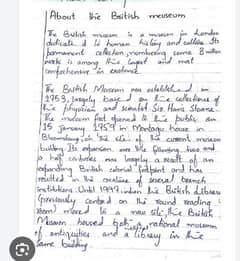 About the British museum
The British museum is a museum in London
dedicated to human history and culture. Its
permanent collection, numbering some 8 million
works is among the largest and most
comprehensive in existence.
The British Museum was established in
1753, largely based on the collections of
the physician and scientist Sir Hans Sloane.
The museum first opened to the public on
15 january 1759 in Montagu house in
Bloomsbury, on the site of the current museum
building. Its expansion over the following two and
a half centuries was largely a result of an
expanding British colonial footprint and has
resulted in the creation of several branch
institutions. Until 1997, when the British Library
(previously centred on the round reading
room) moved to a new site, the British
Museum housed both a national museum
of antiquities and a library in the
same building.